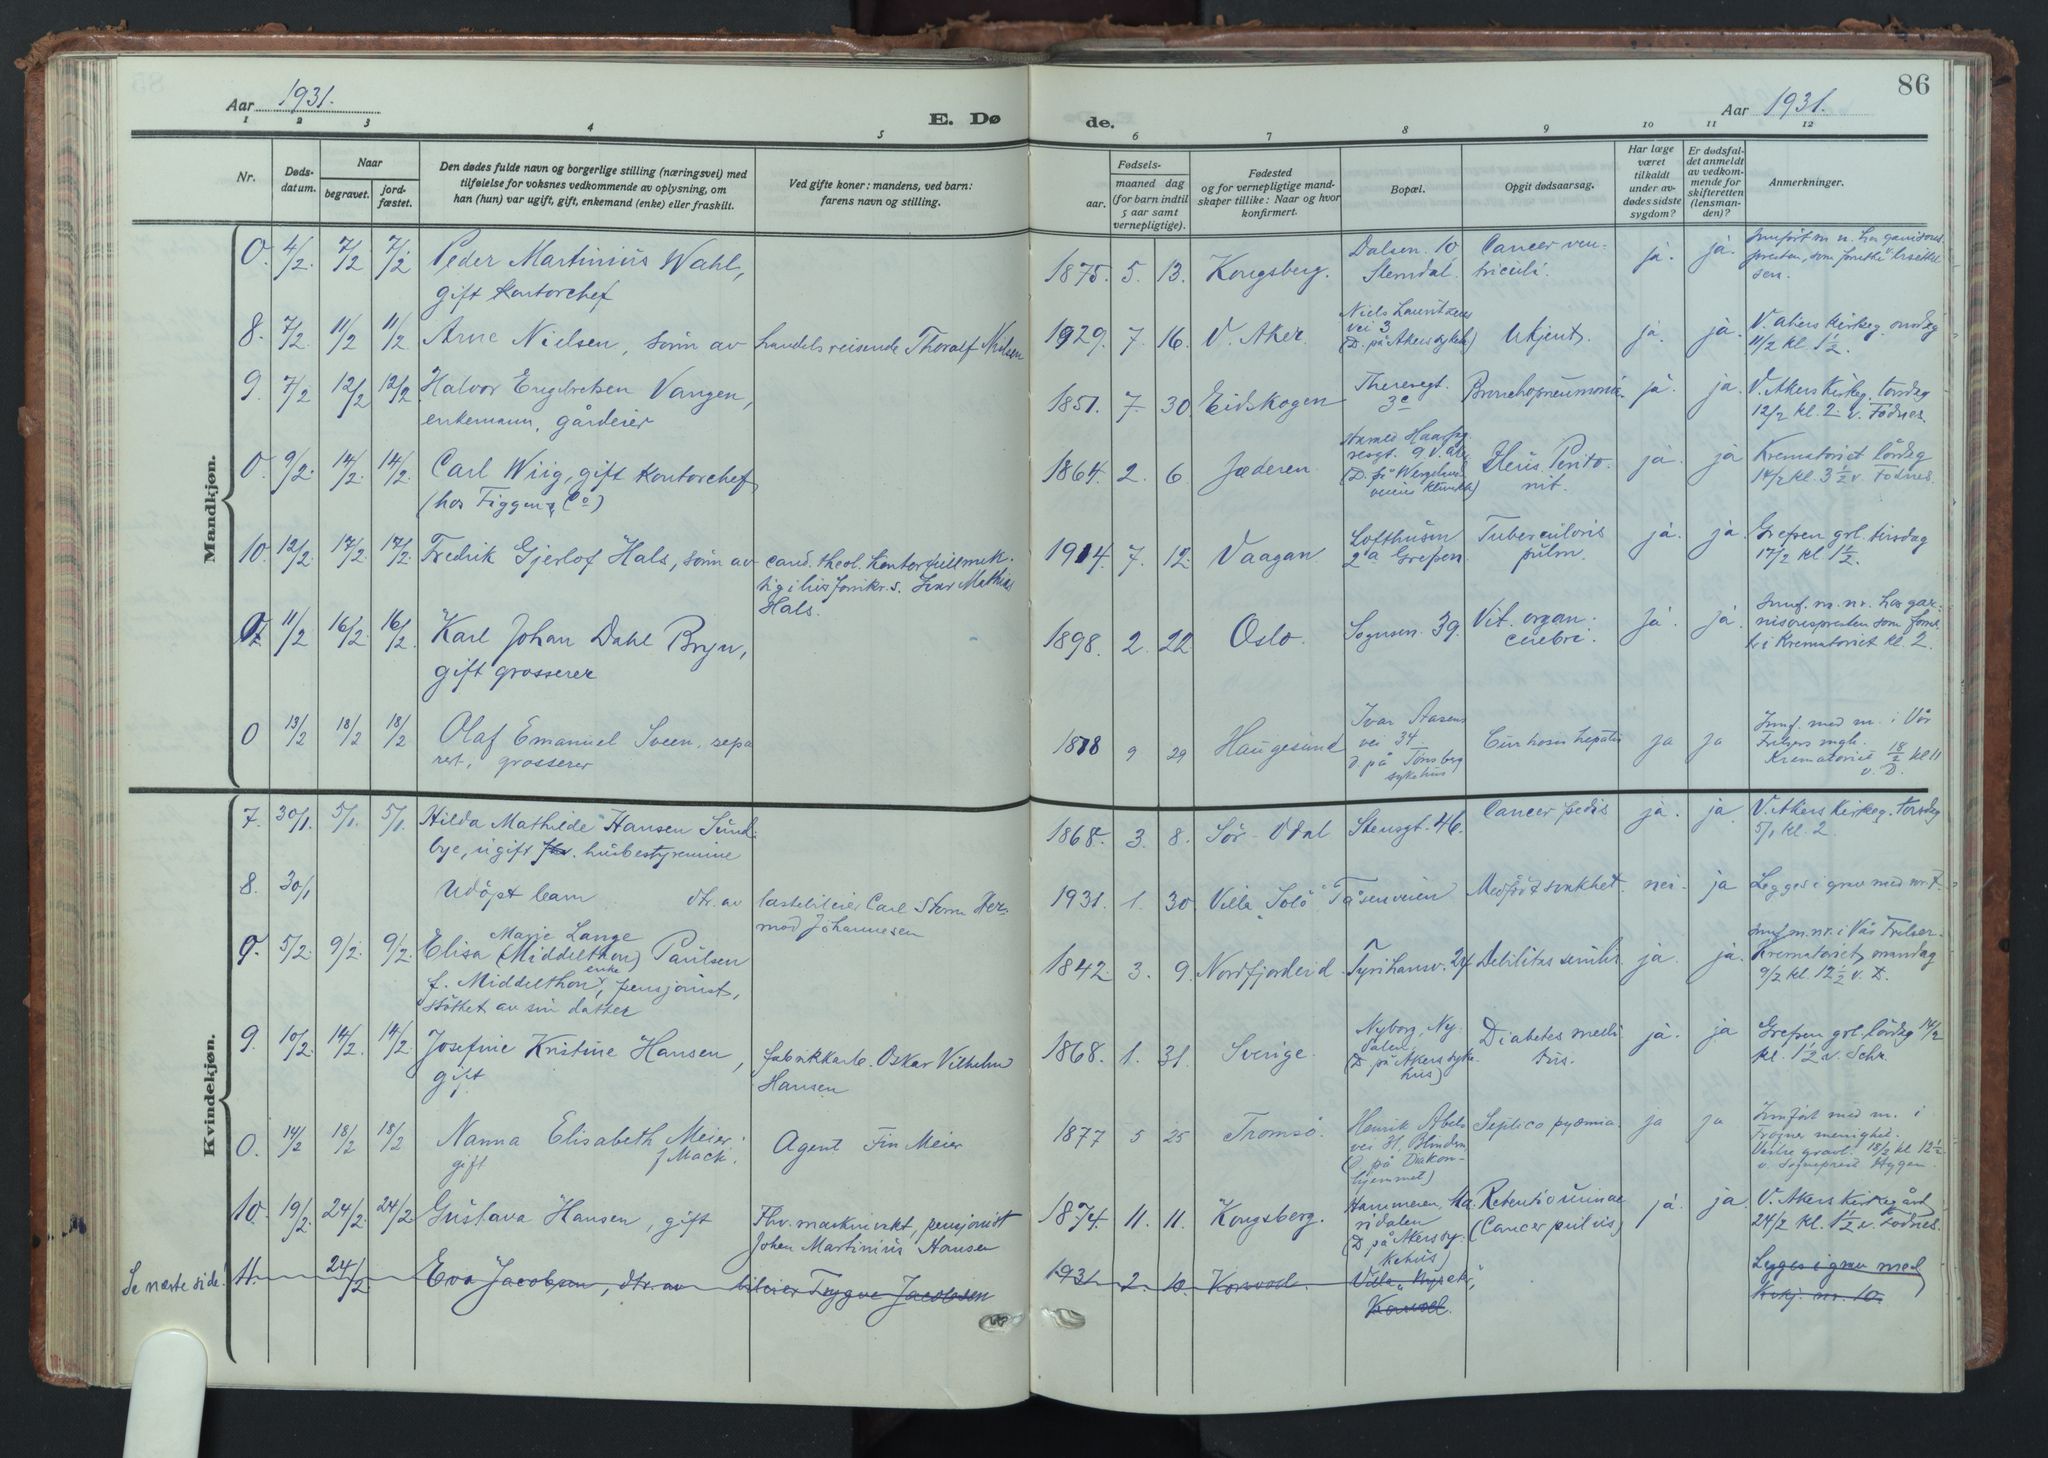 Aar 1931.
E. Dø de.
Aar 1931.
86
1 2 3 4 5 6 7 8 9 10 11 12
Nr.
Døds-
datum.
Naar
begravet.
jord-
fæstet.
Den dødes fulde navn og borgerlige stilling (næringsvei) med
tilføielse for voksnes vedkommende av oplysning, om
han (hun) var ugift, gift, enkemand (enke) eller fraskilt.
Ved gifte koner: mandens, ved barn:
farens navn og stilling.
Fødsels-
aar.
maaned dag
(for barn indtil
5 aar samt
vernepligtige).
Fødested
og for vernepligtige mand-
skaper tillike: Naar og hvor
konfirmert.
Bopæl.
Opgit dødsaarsag.
Har læge
været
tilkaldt
under av-
dødes sidste
sygdom?
Er dødsfal-
det anmeldt
av vedkom-
mende for
skifteretten
(lensman-
den)?
Anmerkninger.
Mandkjøn.
0. 4/2. 7/2 7/2 Peder Martinius Wahl,
gift kontorchef
1875. 5. 13. Kongsberg.
Dalsen. 10,
Stemdal.
Cancer ven-
triculi.
ja. ja.
8. 7/2. 11/2 11/2 Arne Nielsen, sønn av handelsreisende Thoralf Nielsen
1929. 7. 16. V. Aker.
Niels Lauritzens
vei 3
(D. på Akers sykeh.)
Ukjent.
ja. ja.
V. Akers kirkeg. onsdag
11/2 kl. 1 1/2.
9. 7/2 12/2 12/2 Halvor Engebretsen Vangen,
enkemann, gårdeier
1851. 7. 30 Eidskogen
Theresegt.
3c
Bronchopneumonia.
ja. ja.
V. Akers Kirkeg. torsdag
12/2 kl. 2. v. Födnes.
0. 9/2. 14/2. 14/2. Carl Wiig, gift kontorchef
1864. 2. 6. Jæderen.
Ileus. Perito-
nit.
ja. ja
Krematoriet lördag
14/2 kl. 3 1/2 v. Födnes.
10. 12/2. 17/2. 17/2. Fredrik Gjerlof Hals, sønn av
Hals.
1914. 7. 12. Vaagan.
Lofthusvn
2a Grefsen.
Tuberculosis
pulm.
ja. ja.
Grefsen grl. tirsdag
17/2 kl 1 1/2.
0. 11/2 16/2. 16/2. Karl Johan Dahl Bryn,
gift grosserer
1898. 2. 22 Oslo.
Sognsvn. 39.
Vit. organ.
cerebri.
ja. ja.
tr i Krematoriet kl. 2.
0 13/2 18/2 18/2 Olaf Emanuel Sveen, sepa
rert, grosserer
1878 9 29 Haugesund
Ivar Aasens
vei 34
d. på Tønsberg
sykehus
Cirrhosis hepatis
ja ja
Innf. med m. i Vår
Frelsers mgh.
Krematoriet 18/2 kl 11
v. D.
Kvindekjøn.
7. 30/1. 5/1. 5/1. Hilda Mathilde Hansen Sund-
bye, ugift husbestyrerinne
1868. 3. 8. Sör-Odal
Stensgt. 46.
Cancer pedis
ja. ja.
V. Akers Kirkeg. torsdag
5/1 kl. 2.
8. 30/1 Udöpt barn dtr. av lastebileier Carl Storm Her-
mod Johannesen
1931. 1. 30. Villa "Solö" Tåsenveien
Medfödt svakhet.
nei. ja
5/2. 9/2. 9/2. Elisa Marie Lange (Middelthon) Paulsen
f. Middelthon, enke, pensjonist,
støttet av sin datter
1842. 3. 9. Nordfjordeid. Tyrihansv. 24
Debilitas senilis
ja. ja.
Innf. m. nr. i Vås Frelser-
Krematoriet, mandag
9/2 kl. 12 1/2 v. D.
9. 10/2. 14/2. 14/2. Josefine Kristine Hansen,
gift.
fabrikkarb. Oskar Vilhelm
Hansen
1868. 1. 31. Sverige.
Nyborg, Ny-
dalen
(D. på Akers syke-
hus)
Diabetes melli
tus.
ja. ja
Grefsen grl. lördag 14/2
kl. 1 1/2 v. Schr.
0. 14/2 18/2 18/2 Nanna Elisabeth Meier.
gift f. Mack.
Agent Fin Meier
1877 5 25 Tromsø.
Henrik Ibsens
D på Diakon-
hjemmet)
Septico pyæmia.
ja ja
Innført med m. i
Frogner menighet.
Vestre gravl. 18/2 kl 12 1/2
v. Sogneprest Hygen.
10. 19/2. 24/2. 24/2 Gustava Hansen, gift
Fhv. maskinvakt, pensjonist
Johan Martinius Hansen
1874. 11. 11. Kongsberg.
Hammeren, Ma-
ridalen
(D. på Akers sy-
kehus)
Retentio urinae
(Cancer pelvis)
ja. ja.
V. Akers Kirkegård
24/2 kl. 1 1/2 v. Födnes.
Se næste side!
11. 24/2 Eva Jacobsen, dtr. av bileier Trygve Jacobsen
1931 2. 10. Korsvoll.
Korsvoll.
Legges i grav med
Kvkj. nr. 10.